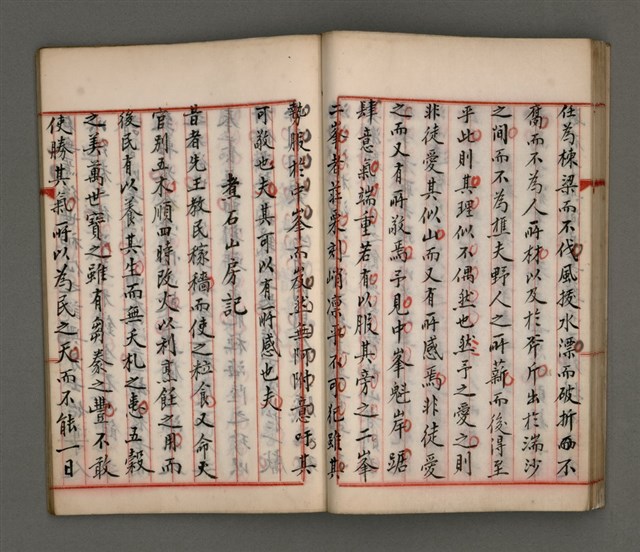 任為棟梁而不伐風拔水漂而破折而不
腐而不為人所材以及於斧斤出於湍沙
之間而不為樵夫野人之所薪而後得至
乎此則其理似不偶然也然予之愛之則
非徒愛其似山而又有所感焉非徒愛
之而又有所敬焉予見中峯魁岸踞
肆意氣端重若有以服其旁之二峯
二峯者莊栗刻峭凛乎不可犯雖其
勢服於中峯而岌然無阿附意吁其
可敬也夫其可以有所感也夫
煮石山房記
昔者先王教民稼穡而使之粒食又命火
官別五木順四時改火以利烹飪之用而
後民有以養其生而無夭札之患五穀
之美萬世寶之雖有芻豢之豐不敢
使勝其氣所以為民之天而不能一日